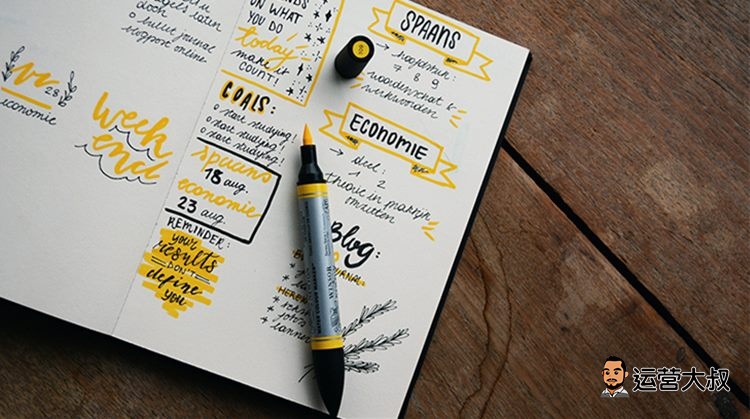 later
doch
o bullet journal
blogpost online
28
economie
week
end
ON WHAT
YOU DO!
today
make it
COUNT!
GOALS:
o start studying!
o start studying!
o start studying!
spaans
18 aug.
economie
23 aug.
REMINDER:
your
results
DON'T
define
you
SPAANS
→ hoofdstuk:
7 8 9
woordenschat &
werkwoorden
ECONOMIE
→ deel:
1 2
theorie in
Blog:
WINSOR
运营大叔